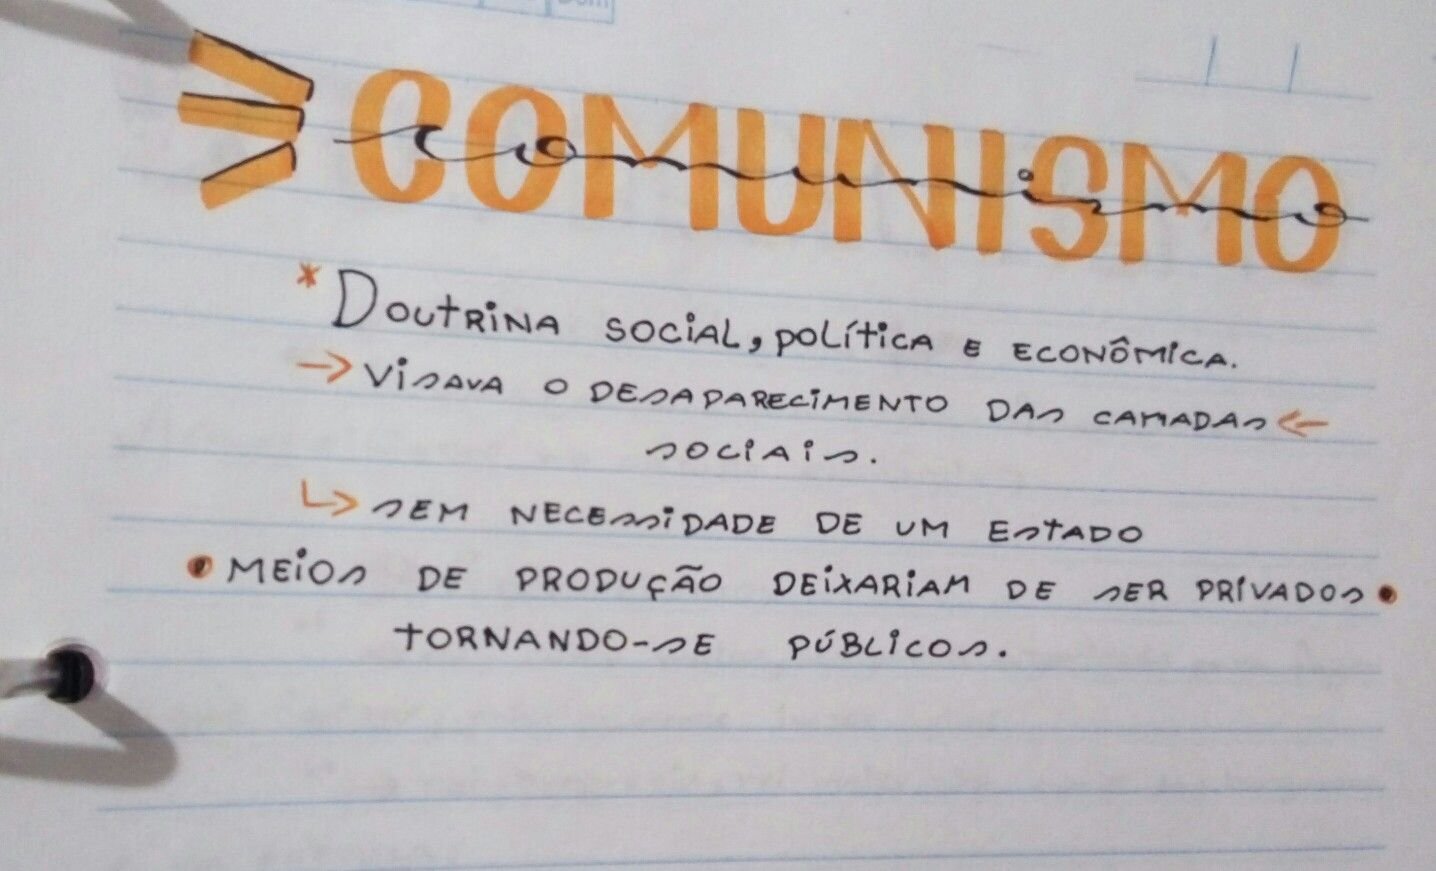 Dom
COMUNISMO
comunismo
* DOUTRINA SOCIAL, POLÍTICA E ECONÔMICA.
→ VISAVA O DESAPARECIMENTO DAS CAMADAS ←
SOCIAIS.
↳ SEM NECESSIDADE DE UM ESTADO
• MEIOS DE PRODUÇÃO DEIXARIAM DE SER PRIVADOS •
TORNANDO-SE PÚBLICOS.